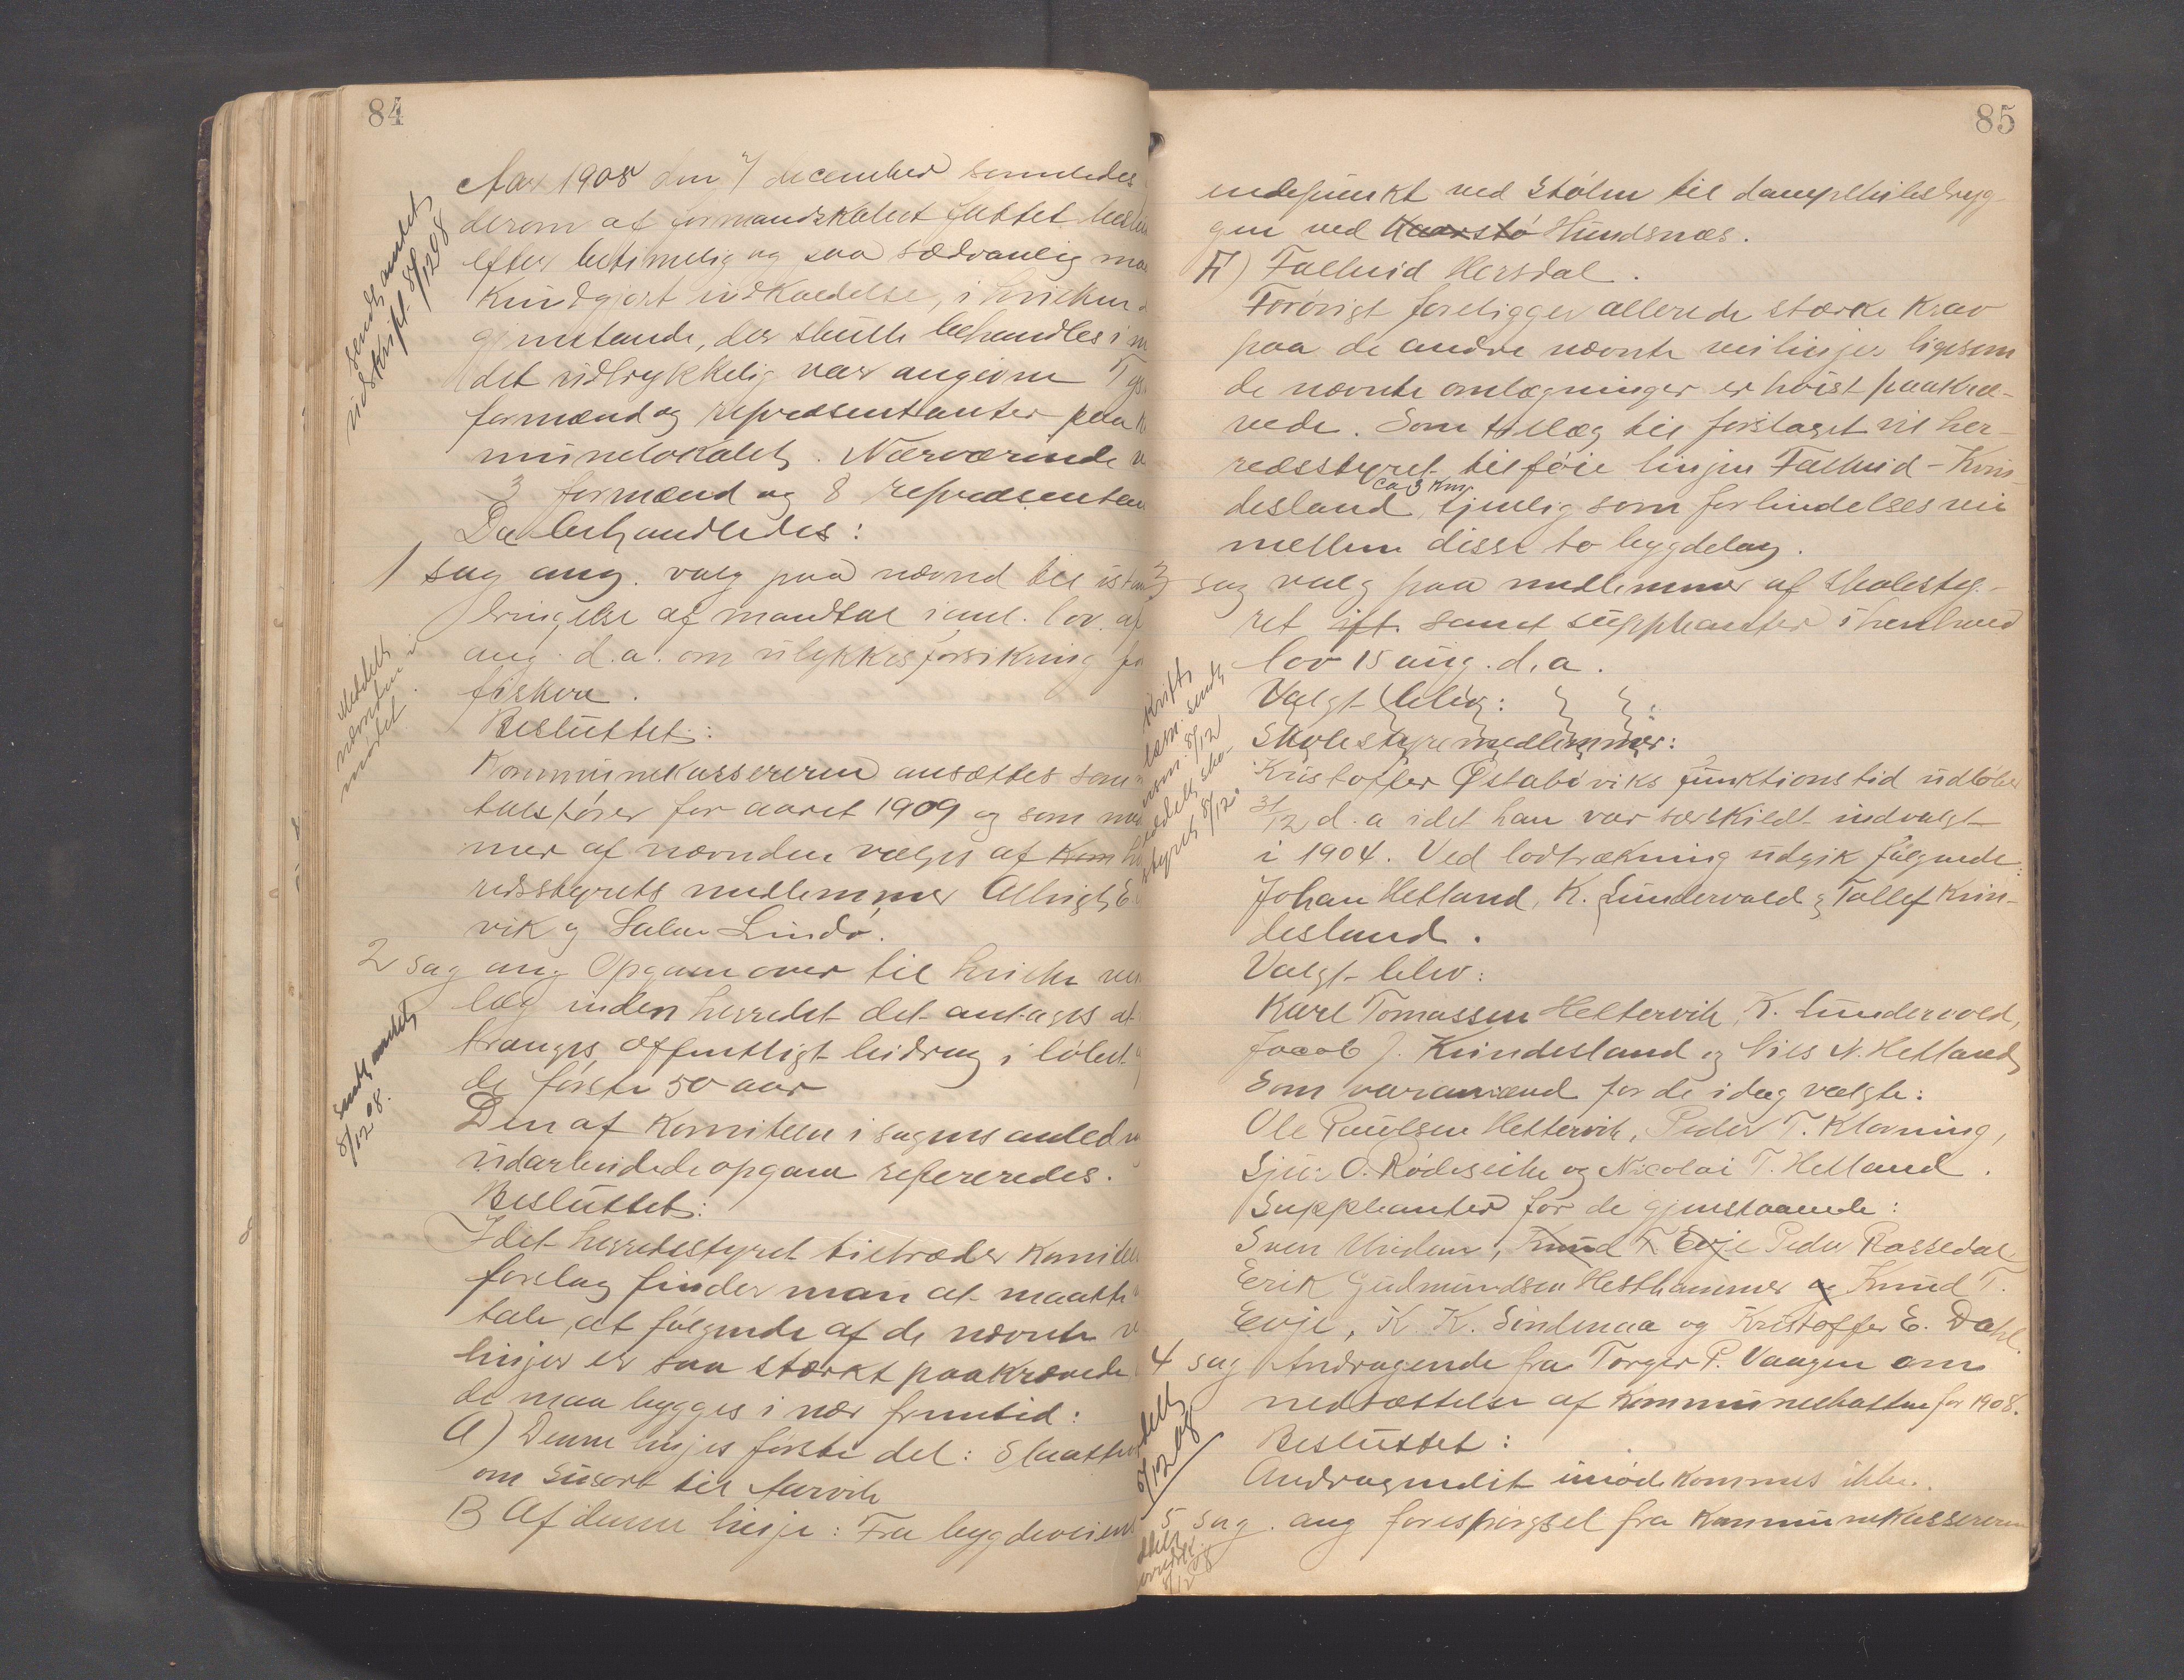 84
Aar 1908 den 7/ december samledes
derom af formandskabet fattet beslut
efter betimelig og paa sædvanlig maa
kundgjort indkaldelse, i hvilken
gjenstande, der skulle behandles i m
det udtrykkelig var angivne Tys
formænd og repræsentanter paa k
munelokalet. Nærværende v
3 formænd og 8 repræsentan
Da behandledes:
1 sag ang. valg paa nævnd til istand
bringelse af mandtal i anl. lov. af
aug. d.a. om ulykkesforsikring for
fiskere.
Besluttet:
Kommunekassereren ansættes som
talsfører for aaret 1909 og som med
mer af nævnden vælges af Kom he
redsstyrets medlemmer Albrigt E
vik og Salm. Lindø.
2 sag ang. Opgave over til hvilke vei
læg inden herredet det antages at
trænges offentligt bidrag i løbet
de første 50 aar
Den af komiteen i sagens anledn
udarbeidede opgave refereredes.
Besluttet:
Idet herredsstyret tiltræder komiteens
forslag finder man at maatte
tale, at følgende af de nævnte v
linjer er saa stærkt paakrævede
de maa bygges i nær fremtid:
A) Denne linjes første del: Slaattevik
om Susort til Aarvik
B Af denne linje: Fra bygdeveiens
sendt amtet
udskrift 8/12 08
Meddelt
nævnden i
mødet.
Sendt amtet
8/12 08.
85
endepunkt ved Stølen til dampskibsbryg-
gen ved Kaarstø Hundsnæs.
F) Falkeid Hersdal.
Forøvrigt foreligger allerede stærke krav
paa de andre nævnte veilinjer ligesom
de nævnte omlægninger er høist paakræ-
vede. Som tillæg til forslaget vil her-
redsstyret tilføie linjen Falkeid-Kvin-
ca 3 km
desland, tjenlig som forbindelsesvei
mellem disse to bygdelag.
3 sag valg paa medlemmer af skolesty-
ret ift. samt suppleanter i henhold
lov 15 aug. d.a.
Valgt blev:
Skolestyremedlemmer:
Kristoffer Østabøviks funktionstid udløber
31/12 d.a idet han var særskildt indvalgt
i 1904. Ved lodtrækning udgik følgende:
Johan Hetland, K. Sundervold & Tollef Kvin-
desland.
Valgt blev:
Karl Tomassen Hettervik, K. Sundervold,
Jacob J. Kvindesland og Nils N. Hetland
Som varamænd for de idag valgte:
Ole Paulsen Hettervik, Peder T. Klovning,
Sjur O. Rødeseike og Nicolai T. Hetland.
Suppleanter for de gjenstaaende:
Sven Undem, Knud T. Evje Peder Rossedal
Erik Gudmundsen Hesthammer og Knud T.
Evje, K. K. Sindenaa og Kristoffer E. Dahl.
4 sag Andragende fra Torger P. Vaagen om
nedsættelse af kommuneskatten for 1908.
Besluttet:
Andragendet imødekommes ikke.
5 sag. ang forespørgsel fra kommunekassereren
8/12
8/12 08
8/12 08